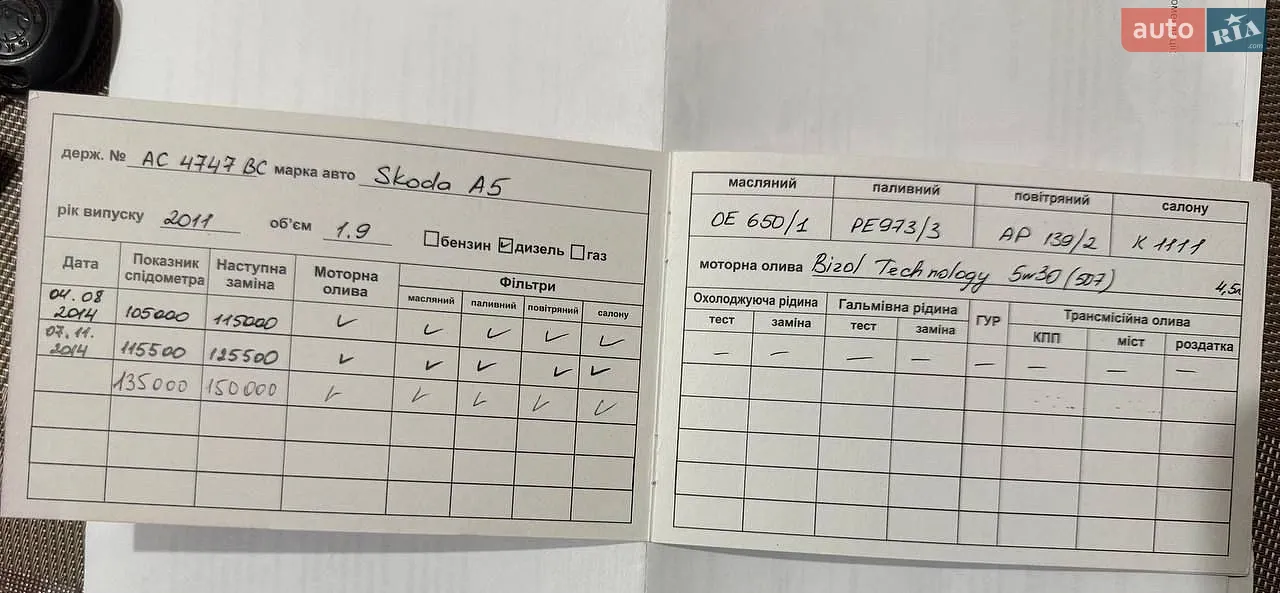 auto RIA .com
держ. № AC 4747 BC марка авто Skoda A5
рік випуску 2011 об'єм 1.9 бензин дизель газ
Дата Показник спідометра Наступна заміна Моторна олива Фільтри
масляний паливний повітряний салону
04.08 2014 105000 115000 ✓ ✓ ✓ ✓ ✓
07.11. 2014 115500 125500 ✓ ✓ ✓ ✓ ✓
135000 150000 ✓ ✓ ✓ ✓ ✓
масляний паливний повітряний салону
OE 650/1 PE973/3 AP 139/2 K 1111
моторна олива Bizol Technology 5w30 (507) 4,5л
Охолоджуюча рідина Гальмівна рідина ГУР Трансмісійна олива
тест заміна тест заміна КПП міст роздатка
— — — — — — — —